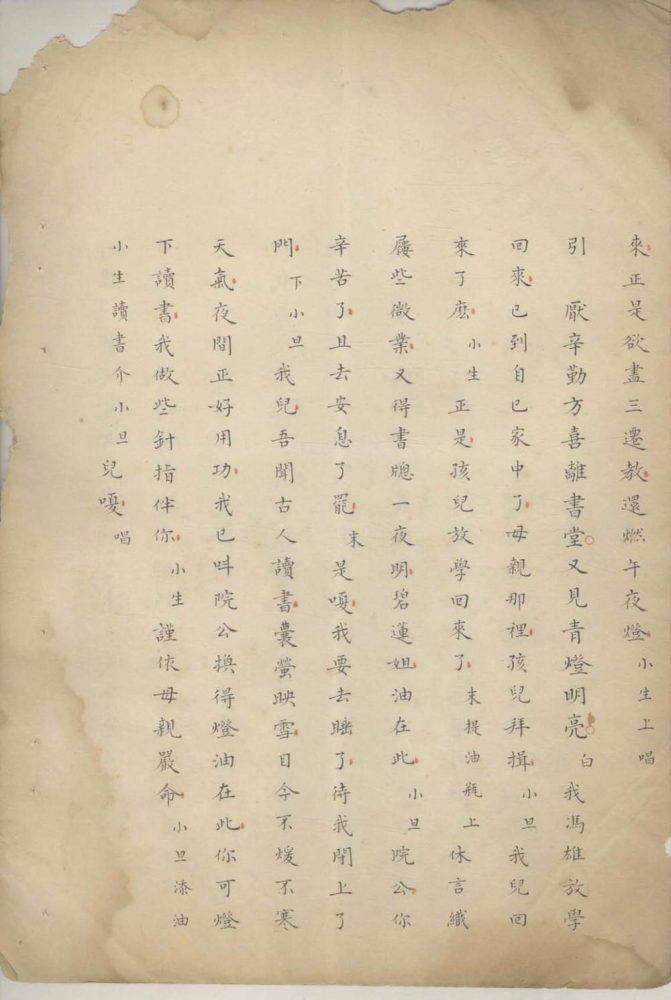 來正是欲盡三遷教還燃午夜燈小生上唱
引　厭辛勤方喜離書堂又見青燈明亮白我馮雄放學
回來已到自己家中了母親那裡孩兒拜揖小旦我兒回
來了麽小生正是孩兒放學回來了末提油瓶上休言織
屨些微業又得書牕一夜明碧蓮姐油在此小旦院公你
辛苦了且去安息了罷末是嗄我要去睡了待我閉上了
門下小旦我兒吾聞古人讀書囊螢映雪目今不煖不寒
天氣夜間正好用功我已呌院公換得燈油在此你可燈
下讀書我做些針指伴你小生謹依母親嚴命小旦添油
小生讀書介小旦兒嗄唱